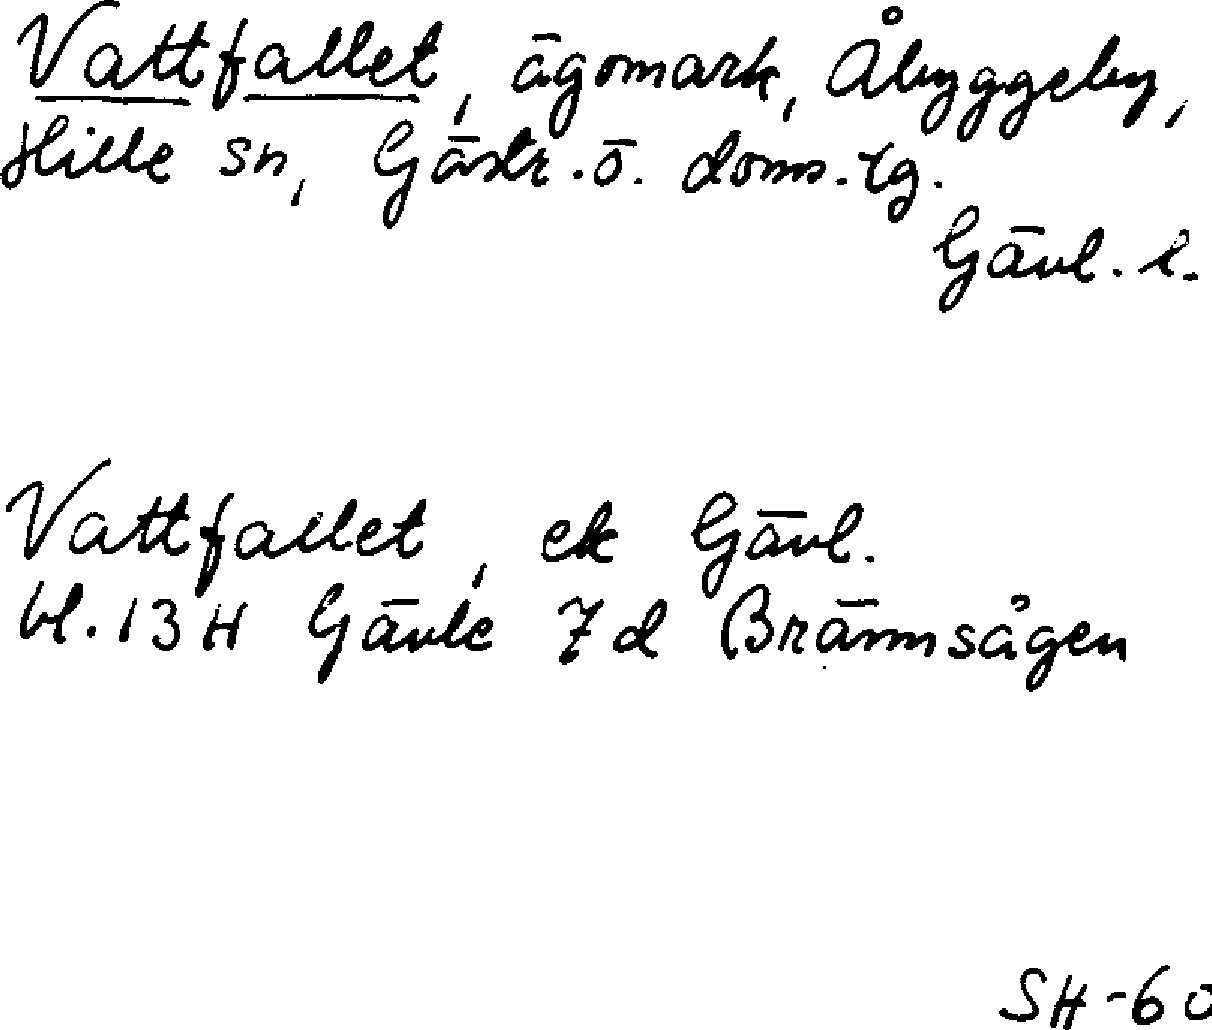 Vattfallet, ägomark, Åbyggeby,
Hille sn, Gästr. ö. doms. tg.
Gävl. l.
Vattfallet, ek Gävl.
bl. 13 H Gävle 7 d Brännsågen
SH-60